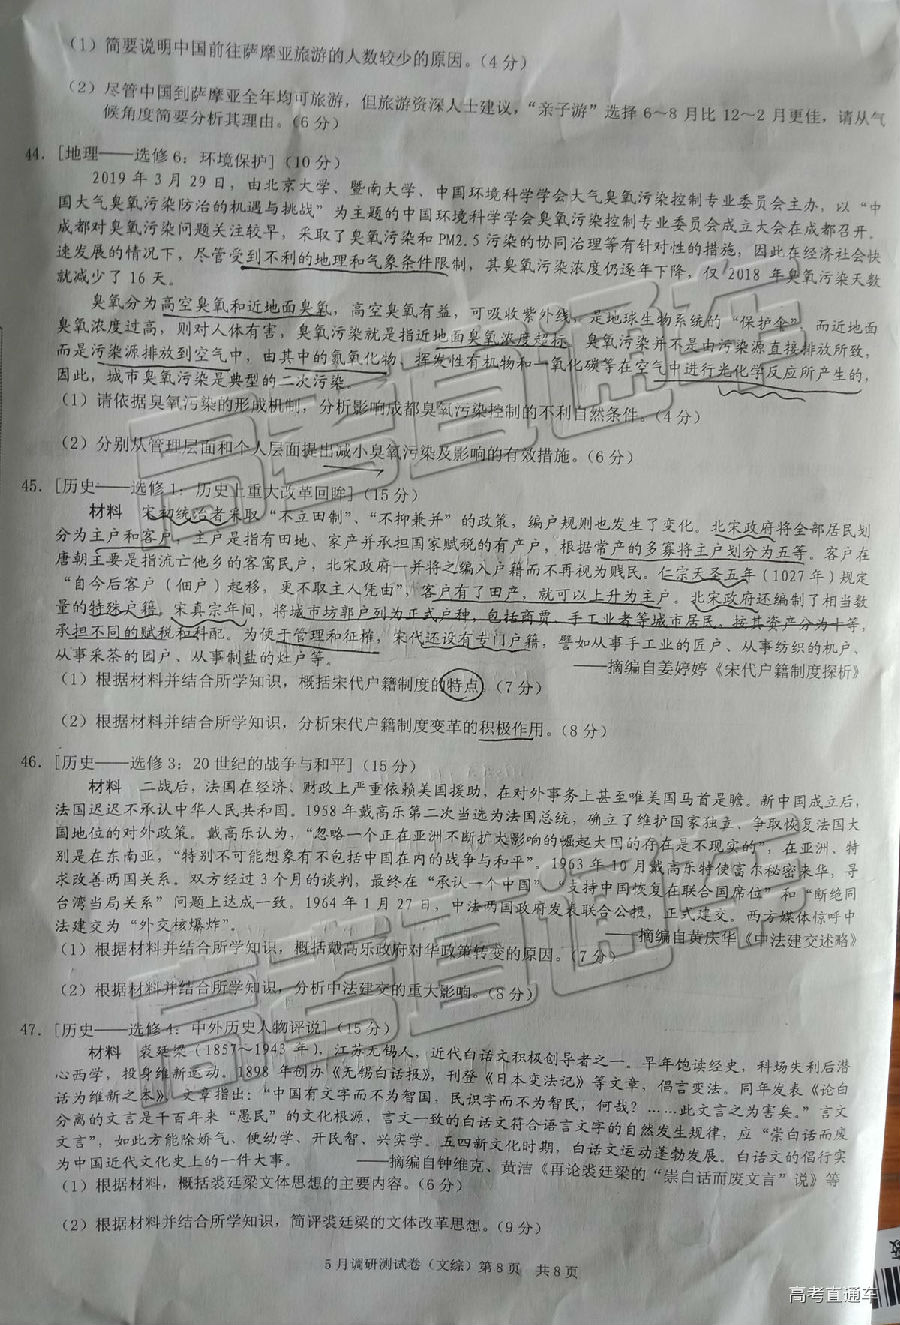 (1) 简要说明中国前往萨摩亚旅游的人数较少的原因。(4分)
(2) 尽管中国到萨摩亚全年均可旅游，但旅游资深人士建议，“亲子游”选择6～8月比12～2月更佳，请从气
候角度简要分析其理由。(6分)
44. [地理——选修6：环境保护] (10分)
2019年3月29日，由北京大学、暨南大学、中国环境科学学会大气臭氧污染控制专业委员会主办，以“中
国大气臭氧污染防治的机遇与挑战”为主题的中国环境科学学会臭氧污染控制专业委员会成立大会在成都召开。
成都对臭氧污染问题关注较早，采取了臭氧污染和PM2.5污染的协同治理等有针对性的措施，因此在经济社会快
速发展的情况下，尽管受到不利的地理和气象条件限制，其臭氧污染浓度仍逐年下降，仅2018年臭氧污染天数
就减少了16天。
臭氧分为高空臭氧和近地面臭氧，高空臭氧有益，可吸收紫外线，是地球生物系统的“保护伞”，而近地面
臭氧浓度过高，则对人体有害，臭氧污染就是指近地面臭氧浓度超标。臭氧污染并不是由污染源直接排放所致，
而是污染源排放到空气中，由其中的氮氧化物、挥发性有机物和一氧化碳等在空气中进行光化学反应所产生的，
因此，城市臭氧污染是典型的二次污染。
(1) 请依据臭氧污染的形成机制，分析影响成都臭氧污染控制的不利自然条件。(4分)
(2) 分别从管理层面和个人层面提出减小臭氧污染及影响的有效措施。(6分)
45. [历史——选修1：历史上重大改革回眸] (15分)
材料 宋初统治者采取“不立田制”、“不抑兼并”的政策，编户规则也发生了变化。北宋政府将全部居民划
分为主户和客户，主户是指有田地、家产并承担国家赋税的有产户，根据常产的多寡将主户划分为五等。客户在
唐朝主要是指流亡他乡的客寓民户，北宋政府一并将之编入户籍而不再视为贱民。仁宗天圣五年(1027年)规定
“自今后客户（佃户）起移，更不取主人凭由”，客户有了田产，就可以上升为主户。北宋政府还编制了相当数
量的特殊户籍，宋真宗年间，将城市坊郭户列为正式户种，包括商贾、手工业者等城市居民，按其资产分为十等，
承担不同的赋税和科配。为便于管理和征榷，宋代还设有专门户籍，譬如从事手工业的匠户、从事纺织的机户、
从事采茶的园户、从事制盐的灶户等。 ——摘编自姜婷婷《宋代户籍制度探析》
(1) 根据材料并结合所学知识，概括宋代户籍制度的特点。(7分)
(2) 根据材料并结合所学知识，分析宋代户籍制度变革的积极作用。(8分)
46. [历史——选修3：20世纪的战争与和平] (15分)
材料 二战后，法国在经济、财政上严重依赖美国援助，在对外事务上甚至唯美国马首是瞻。新中国成立后，
法国迟迟不承认中华人民共和国。1958年戴高乐第二次当选为法国总统，确立了维护国家独立、争取恢复法国大
国地位的对外政策。戴高乐认为，“忽略一个正在亚洲不断扩大影响的崛起大国的存在是不现实的”，在亚洲、特
别是在东南亚，“特别不可能想象有不包括中国在内的战争与和平”。1963年10月戴高乐特使富尔秘密来华，寻
求改善两国关系。双方经过3个月的谈判，最终在“承认一个中国”、“支持中国恢复在联合国席位”和“断绝同
台湾当局关系”问题上达成一致。1964年1月27日，中法两国政府发表联合公报，正式建交。西方媒体惊呼中
法建交为“外交核爆炸”。 ——摘编自黄庆华《中法建交述略》
(1) 根据材料并结合所学知识，概括戴高乐政府对华政策转变的原因。(7分)
(2) 根据材料并结合所学知识，分析中法建交的重大影响。(8分)
47. [历史——选修4：中外历史人物评说] (15分)
材料 裘廷梁（1857～1943年），江苏无锡人，近代白话文积极创导者之一。早年饱读经史，科场失利后潜
心西学，投身维新运动。1898年创办《无锡白话报》，刊登《日本变法记》等文章，倡言变法。同年发表《论白
话为维新之本》，文章指出：“中国有文字而不为智国，民识字而不为智民，何哉？……此文言之为害矣。”言文
分离的文言是千百年来“愚民”的文化根源，言文一致的白话文符合语言文字的自然发生规律，应“崇白话而废
文言”，如此方能除娇气、便幼学、开民智、兴实学。五四新文化时期，白话文运动蓬勃发展。白话文的倡行实
为中国近代文化史上的一件大事。 ——摘编自钟维克、黄洁《再论裘廷梁的“崇白话而废文言”说》等
(1) 根据材料，概括裘廷梁文体思想的主要内容。(6分)
(2) 根据材料并结合所学知识，简评裘廷梁的文体改革思想。(9分)
5月调研测试卷（文综）第8页 共8页
高考直通车
高考直通车
高考直通车